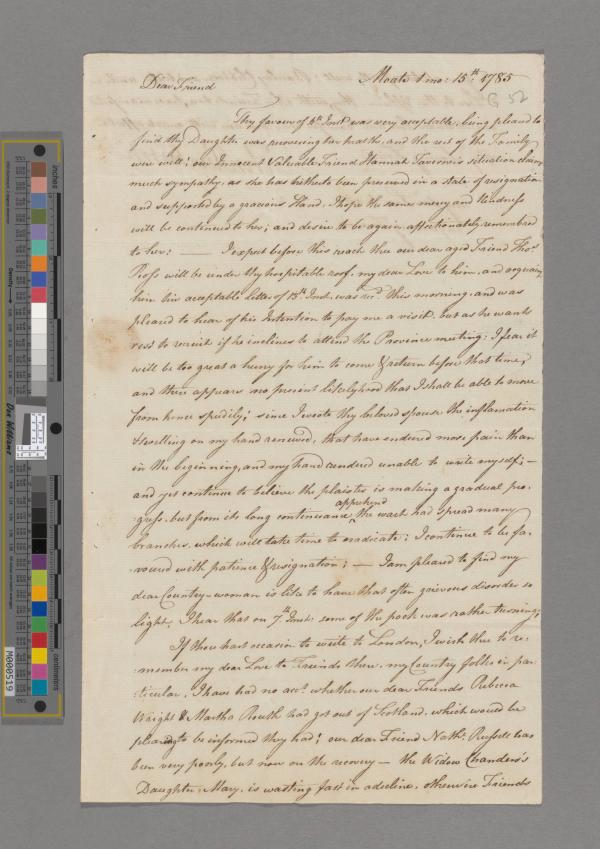 Moate 1 mo: 15th 1785
Dear Friend
G 52
Thy favour of 4th Inst. was very acceptable, being pleased to
find thy Daughter was recovering her health, and the rest of the Family
were well; our Innocent Valuable Friend Hannah situation claims
much sympathy, as she has hitherto been preserved in a state of resignation
and supported by a gracious Hand. I hope the same mercy and kindness
will be continued to her; and desire to be again affectionately remembered
to her: — I expect before this reach thee our dear aged Friend Thos.
Ross will be under thy hospitable roof, my dear Love to him, and acquaint
him his acceptable letter of 13th Inst. was recd. this morning, and was
pleased to hear of his Intention to pay me a visit, but as he wants
rest to recruit if he inclines to attend the Province meeting; I fear it
will be too great a hurry for him to come & return before that time,
and there appears no present likelyhood that I shall be able to move
from hence speedily; since I wrote thy beloved spouse the inflamation
& swelling on my hand renewed, that have endured more pain than
in the beginning, and my hand rendered unable to write myself; —
and yet continue to believe the plaister is making a gradual pro-
gress, but from its long continuance apprehend the wart had spread many
branches, which will take time to eradicate; I continue to be fa-
voured with patience & resignation; — I am pleased to find my
dear Country-woman is like to have that often grievous disorder so
light, I hear that on 7th Inst. some of the pock was rather turning;
If thou hast occasion to write to London, I wish thee to re-
member my dear Love to Friends there, my Country folks in par-
ticular. I have had no acct. whether our dear Friends Rebecca
Wright & Martha Routh had got out of Scotland, which would be
pleasing to be informed they had; our dear Friend Nathl. Russell has
been very poorly, but now on the recovery — the Widow
Daughter Mary, is wasting fast in a decline, otherwise Friends
Density
Don Williams
M000519